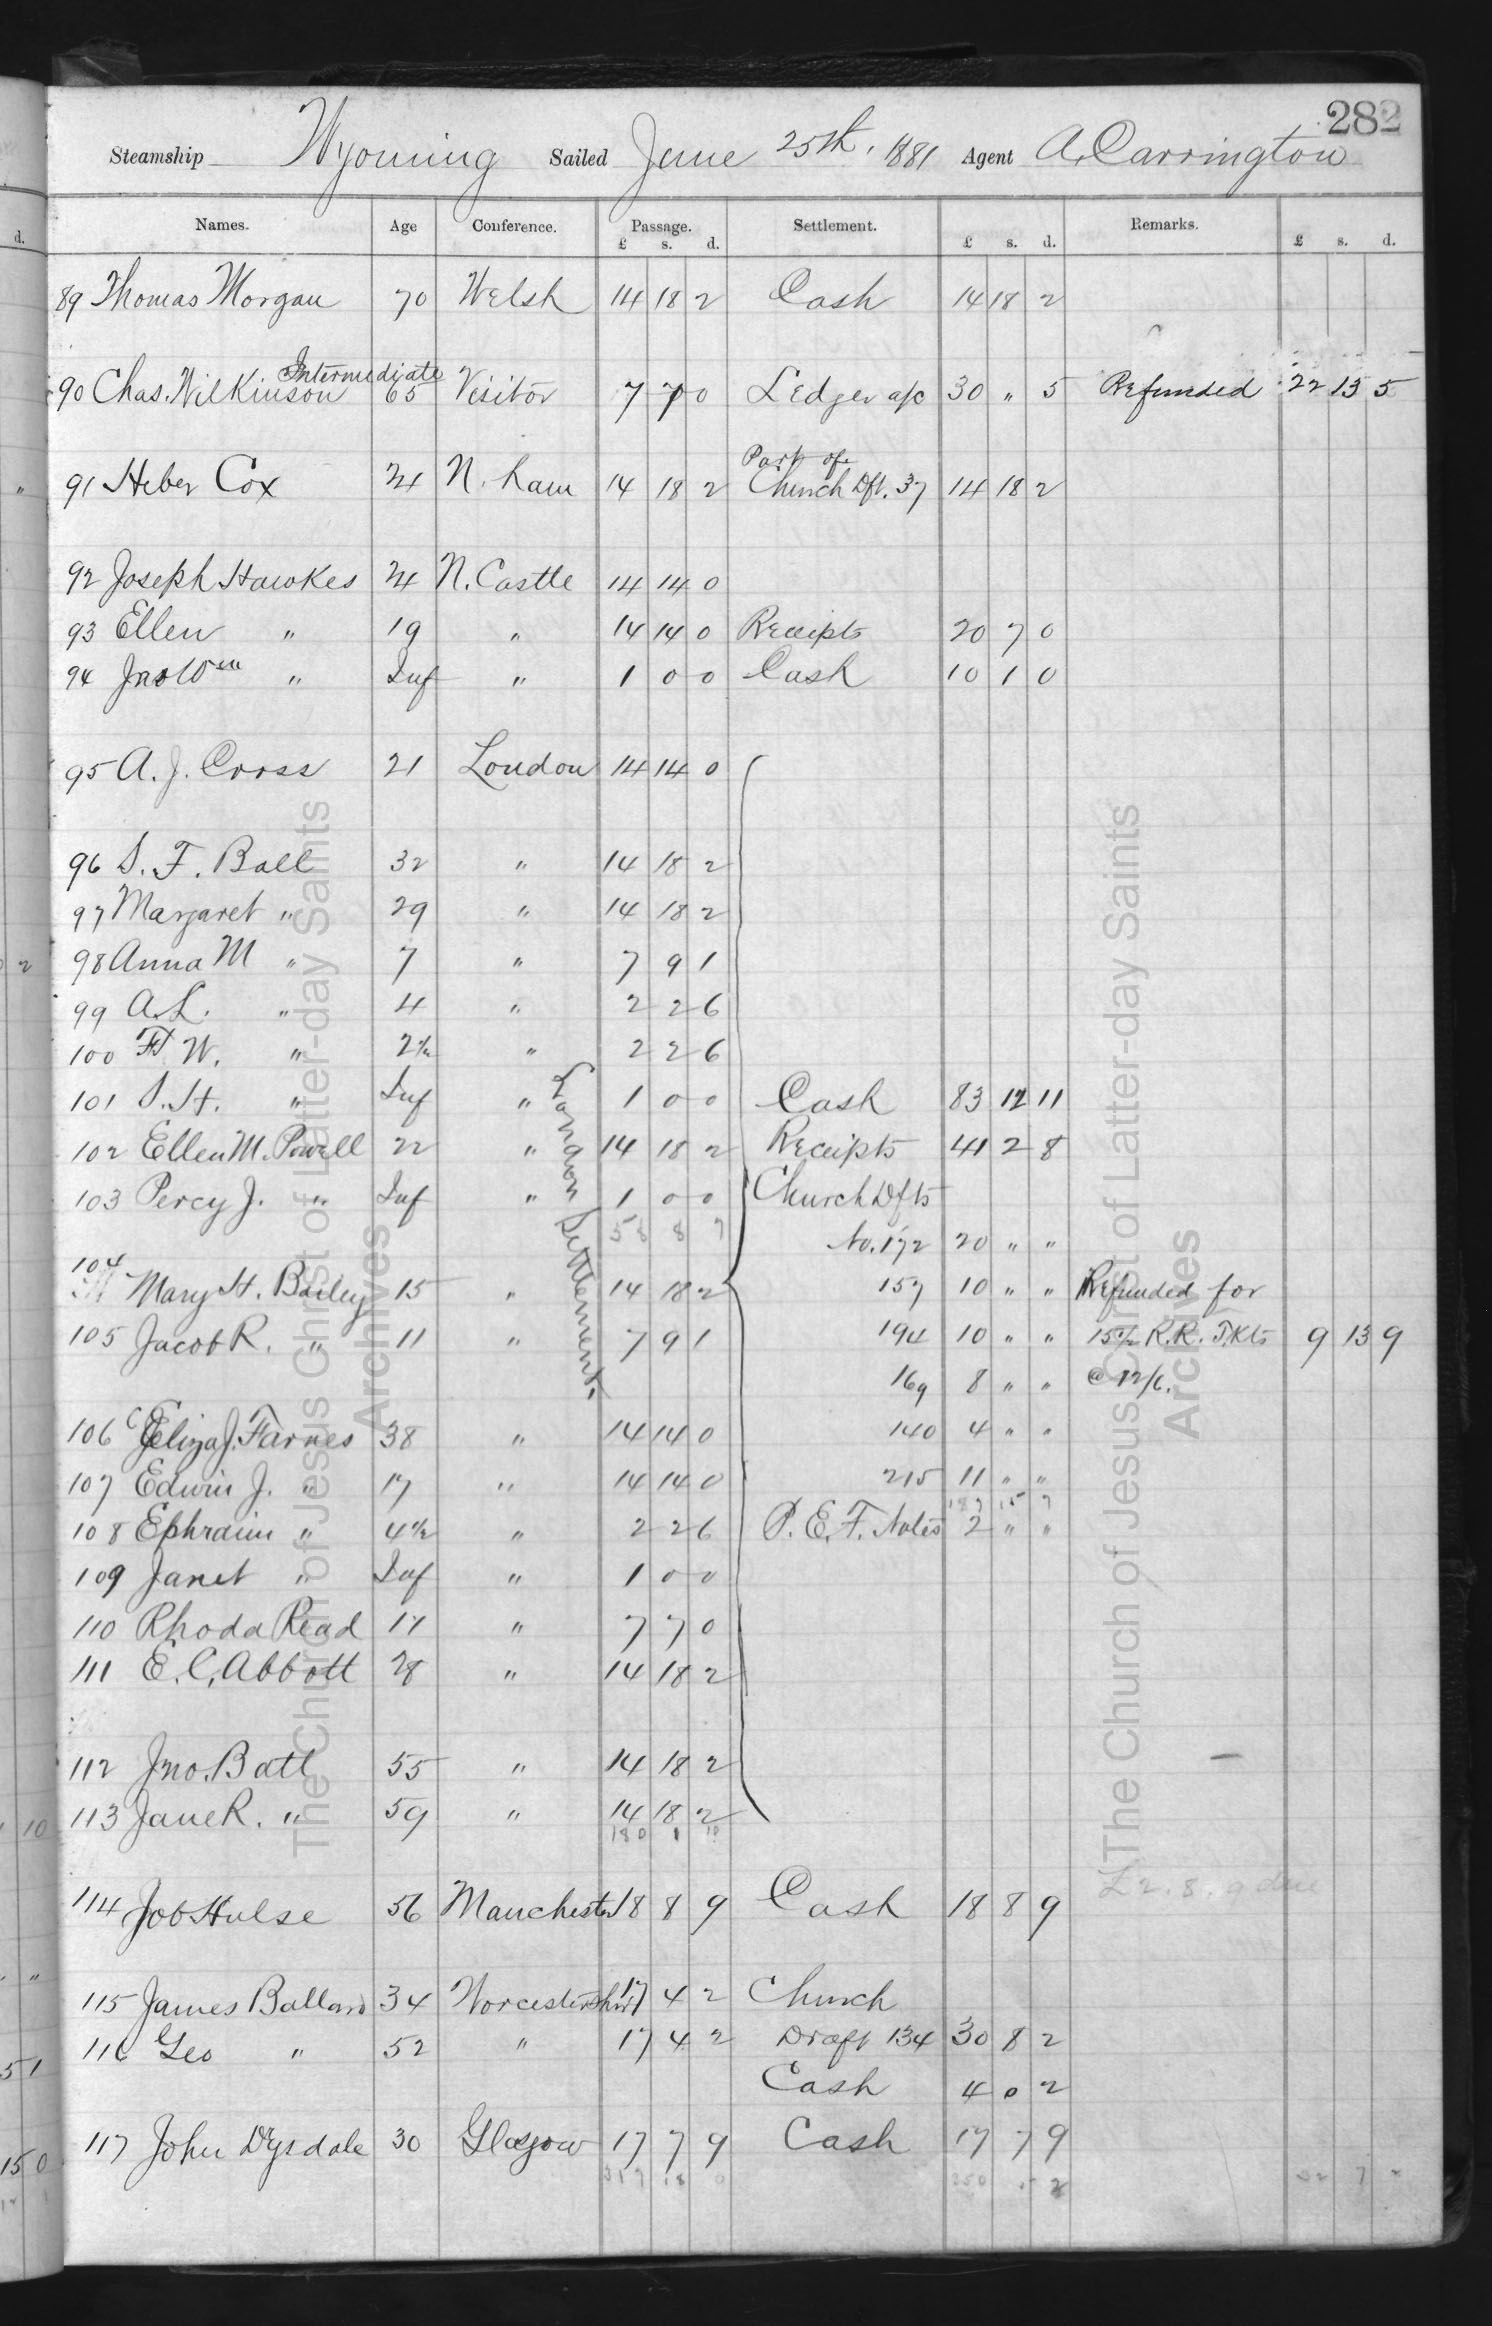 282
Steamship Wyoming Sailed June 25th, 1881 Agent A. Carrington
Names. Age Conference. Passage. Settlement. Remarks.
£ s. d. £ s. d. £ s. d.
89 Thomas Morgan 70 Welsh 14 18 2 Cash 14 18 2
Intermediate
90 Chas. Wilkinson 65 Visitor 7 7 0 Ledger a/c 30 " 5 Refunded 22 13 5
Part of
91 Heber Cox 24 N. ham 14 18 2 Church Dft. 37 14 18 2
92 Joseph Hawkes 24 N. Castle 14 14 0
93 Ellen " 19 " 14 14 0 Receipts 20 7 0
94 Jno Wm " Inf " 1 0 0 Cash 10 1 0
95 A. J. Cross 21 London 14 14 0
96 S. F. Ball 32 " 14 18 2
97 Margaret " 29 " 14 18 2
98 Anna M " 7 " 7 9 1
99 A. L. " 4 " 2 2 6
100 F. W. " 2½ " 2 2 6
101 S. H. " Inf " 1 0 0 Cash 83 12 11
102 Ellen M. Powell 22 " 14 18 2 Receipts 41 2 8
103 Percy J. " Inf " 1 0 0 Church Dfts
58 8 7
No. 172 20 " "
London Settlement.
104 Mary H. Bailey 15 " 14 18 2 157 10 " " Refunded for
105 Jacob R. " 11 " 7 9 1 194 10 " " 15½ R.R. Tkts 9 13 9
169 8 " " @ 12/6.
106 Eliza J. Farnes 38 " 14 14 0 140 4 " "
107 Edwin J. " 17 " 14 14 0 215 11 " "
187 15 7
108 Ephraim " 4½ " 2 2 6 P. E. F. Notes 2 " "
109 Janet " Inf " 1 0 0
110 Rhoda Read 17 " 7 7 0
111 E. C. Abbott 28 " 14 18 2
112 Jno. Batt 55 " 14 18 2
113 Jane R. " 59 " 14 18 2
180 1 10
£2. 8. 9 due
114 Job Hulse 56 Manchester 18 8 9 Cash 18 8 9
115 James Ballard 34 Worcestershire 17 4 2 Church
116 Geo " 52 " 17 4 2 Draft 134 30 8 2
Cash 4 0 2
117 John Dysdale 30 Glasgow 17 7 9 Cash 17 7 9
The Church of Jesus Christ of Latter-day Saints
Archives
The Church of Jesus Christ of Latter-day Saints
Archives